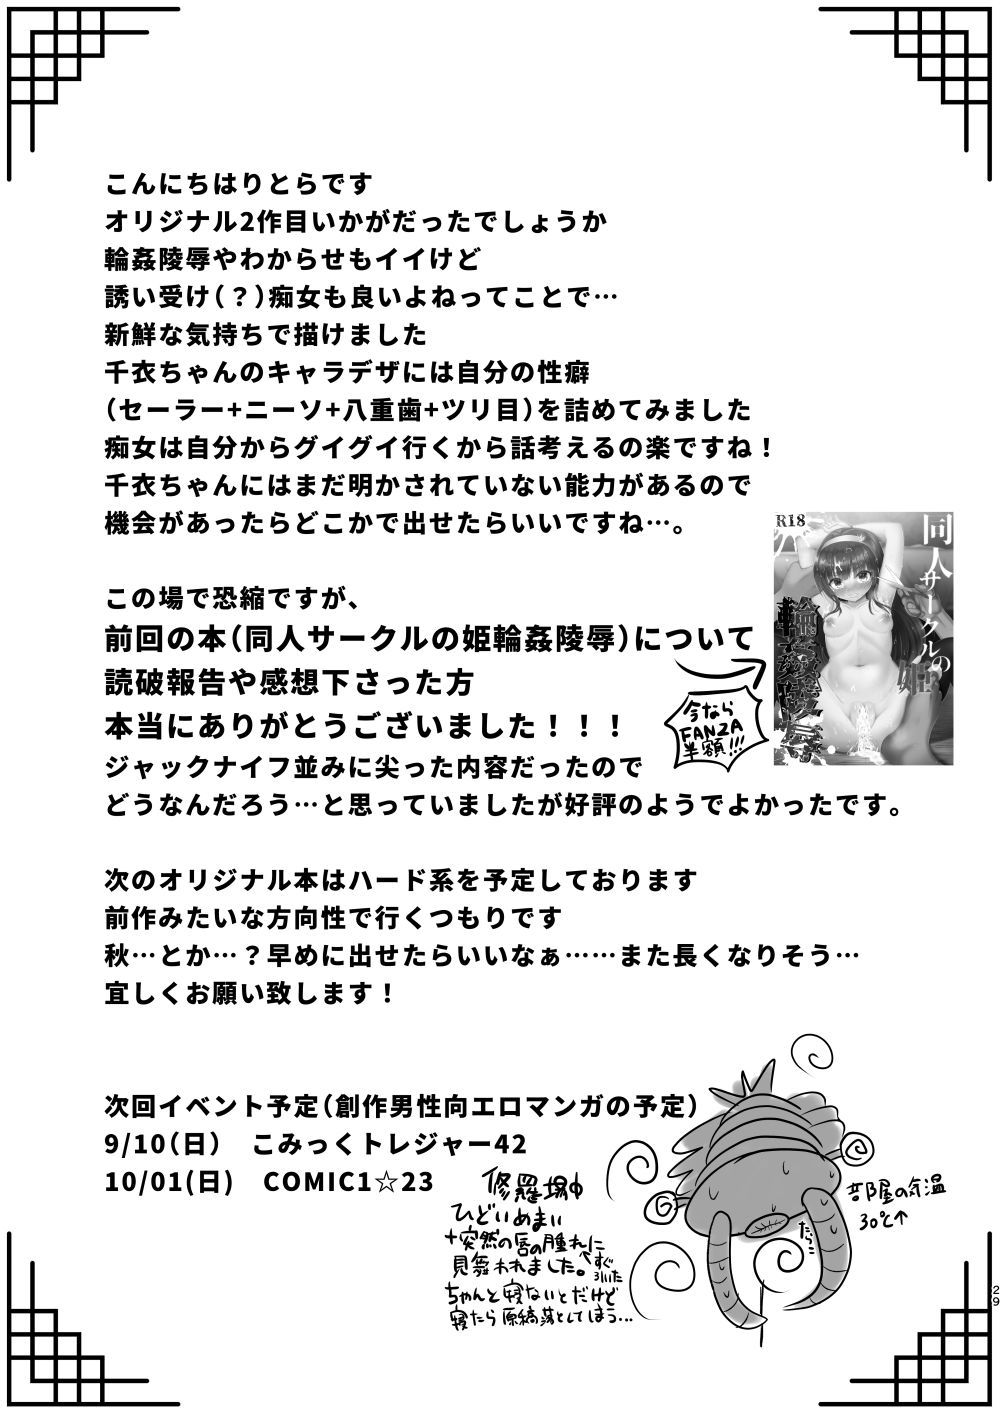 こんにちはりとらです
オリジナル2作目いかがだったでしょうか
輪姦陵辱やわからせもイイけど
誘い受け（？）痴女も良いよねってことで…
新鮮な気持ちで描けました
千衣ちゃんのキャラデザには自分の性癖
（セーラー+ニーソ+八重歯+ツリ目）を詰めてみました
痴女は自分からグイグイ行くから話考えるの楽ですね！
千衣ちゃんにはまだ明かされていない能力があるので
機会があったらどこかで出せたらいいですね…。
この場で恐縮ですが、
前回の本（同人サークルの姫輪姦陵辱）について
読破報告や感想下さった方
本当にありがとうございました！！！
ジャックナイフ並みに尖った内容だったので
どうなんだろう…と思っていましたが好評のようでよかったです。
R18
同人サークルの姫
輪姦陵辱
今なら
FANZA
半額!!!
次のオリジナル本はハード系を予定しております
前作みたいな方向性で行くつもりです
秋…とか…？早めに出せたらいいなぁ……また長くなりそう…
宜しくお願い致します！
次回イベント予定（創作男性向エロマンガの予定）
9/10（日）　こみっくトレジャー42
10/01(日)　COMIC1☆23
修羅場中
ひどいめまい
+突然の唇の腫れに
見舞われました。
すぐ
引いた
ちゃんと寝ないとだけど
寝たら原稿落としてしまう…
たらこ
部屋の気温
30℃↑
29